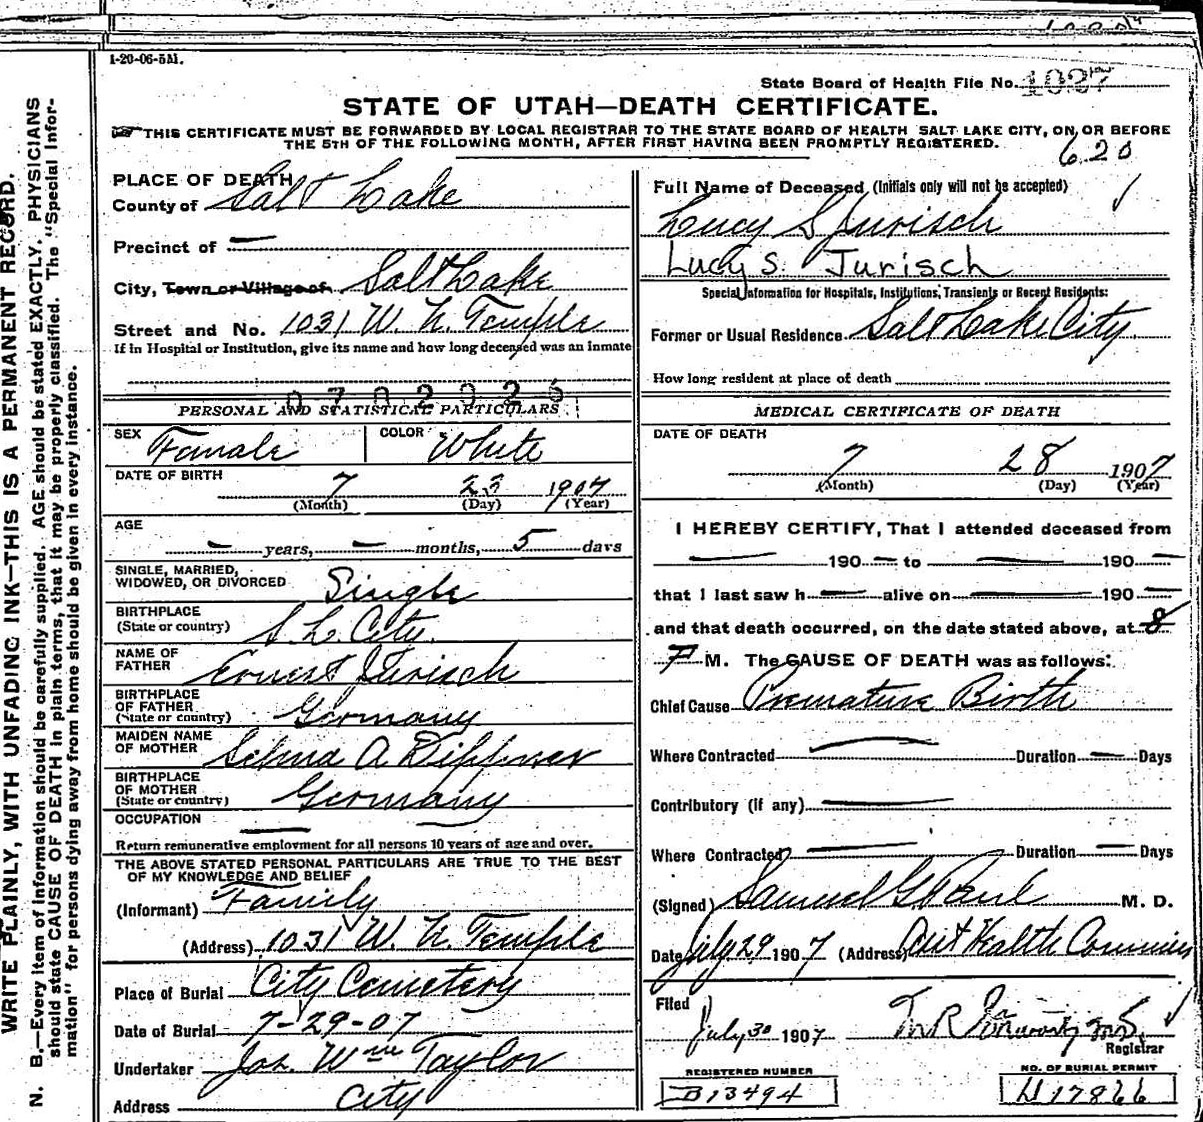 1-20-06-5M.
State Board of Health File No. 1027
STATE OF UTAH—DEATH CERTIFICATE.
THIS CERTIFICATE MUST BE FORWARDED BY LOCAL REGISTRAR TO THE STATE BOARD OF HEALTH SALT LAKE CITY, ON OR BEFORE
THE 5TH OF THE FOLLOWING MONTH, AFTER FIRST HAVING BEEN PROMPTLY REGISTERED.
620
WRITE PLAINLY, WITH UNFADING INK—THIS IS A PERMANENT RECORD.
N. B.—Every item of information should be carefully supplied. AGE should be stated EXACTLY. PHYSICIANS
should state CAUSE OF DEATH in plain terms, that it may be properly classified. The "Special Infor-
mation" for persons dying away from home should be given in every instance.
PLACE OF DEATH
County of Salt Lake
Precinct of —
City, Town or Village of Salt Lake
Street and No. 1031 W. N. Temple
If in Hospital or Institution, give its name and how long deceased was an inmate
0702926
PERSONAL AND STATISTICAL PARTICULARS
SEX Female COLOR White
DATE OF BIRTH 7 23 1907
(Month) (Day) (Year)
AGE
— years, — months, 5 days
SINGLE, MARRIED,
WIDOWED, OR DIVORCED Single
BIRTHPLACE
(State or country) S. L. City.
NAME OF
FATHER Ernest Jurisch
BIRTHPLACE
OF FATHER
(State or country) Germany
MAIDEN NAME
OF MOTHER Selma A
BIRTHPLACE
OF MOTHER
(State or country) Germany
OCCUPATION —
Return remunerative employment for all persons 10 years of age and over.
THE ABOVE STATED PERSONAL PARTICULARS ARE TRUE TO THE BEST
OF MY KNOWLEDGE AND BELIEF
(Informant) Family
(Address) 1031 W. N. Temple
Place of Burial City Cemetery
Date of Burial 7-29-07
Undertaker Jos. Wm Taylor
Address City
Full Name of Deceased (Initials only will not be accepted)
Lucy S Jurisch
Lucy S. Jurisch
Special Information for Hospitals, Institutions, Transients or Recent Residents:
Former or Usual Residence Salt Lake City
How long resident at place of death
MEDICAL CERTIFICATE OF DEATH
DATE OF DEATH
7 28 1907
(Month) (Day) (Year)
I HEREBY CERTIFY, That I attended deceased from
— 190 — to — 190 —
that I last saw h — alive on — 190 —
and that death occurred, on the date stated above, at 8
P M. The CAUSE OF DEATH was as follows:
Chief Cause Premature Birth
Where Contracted — Duration — Days
Contributory (if any) —
Where Contracted — Duration — Days
(Signed) Samuel G Paul M. D.
Date July 29 1907 (Address) Health Commiss
Filed
July 30 1907
Registrar
REGISTERED NUMBER
B13494
NO. OF BURIAL PERMIT
H17866